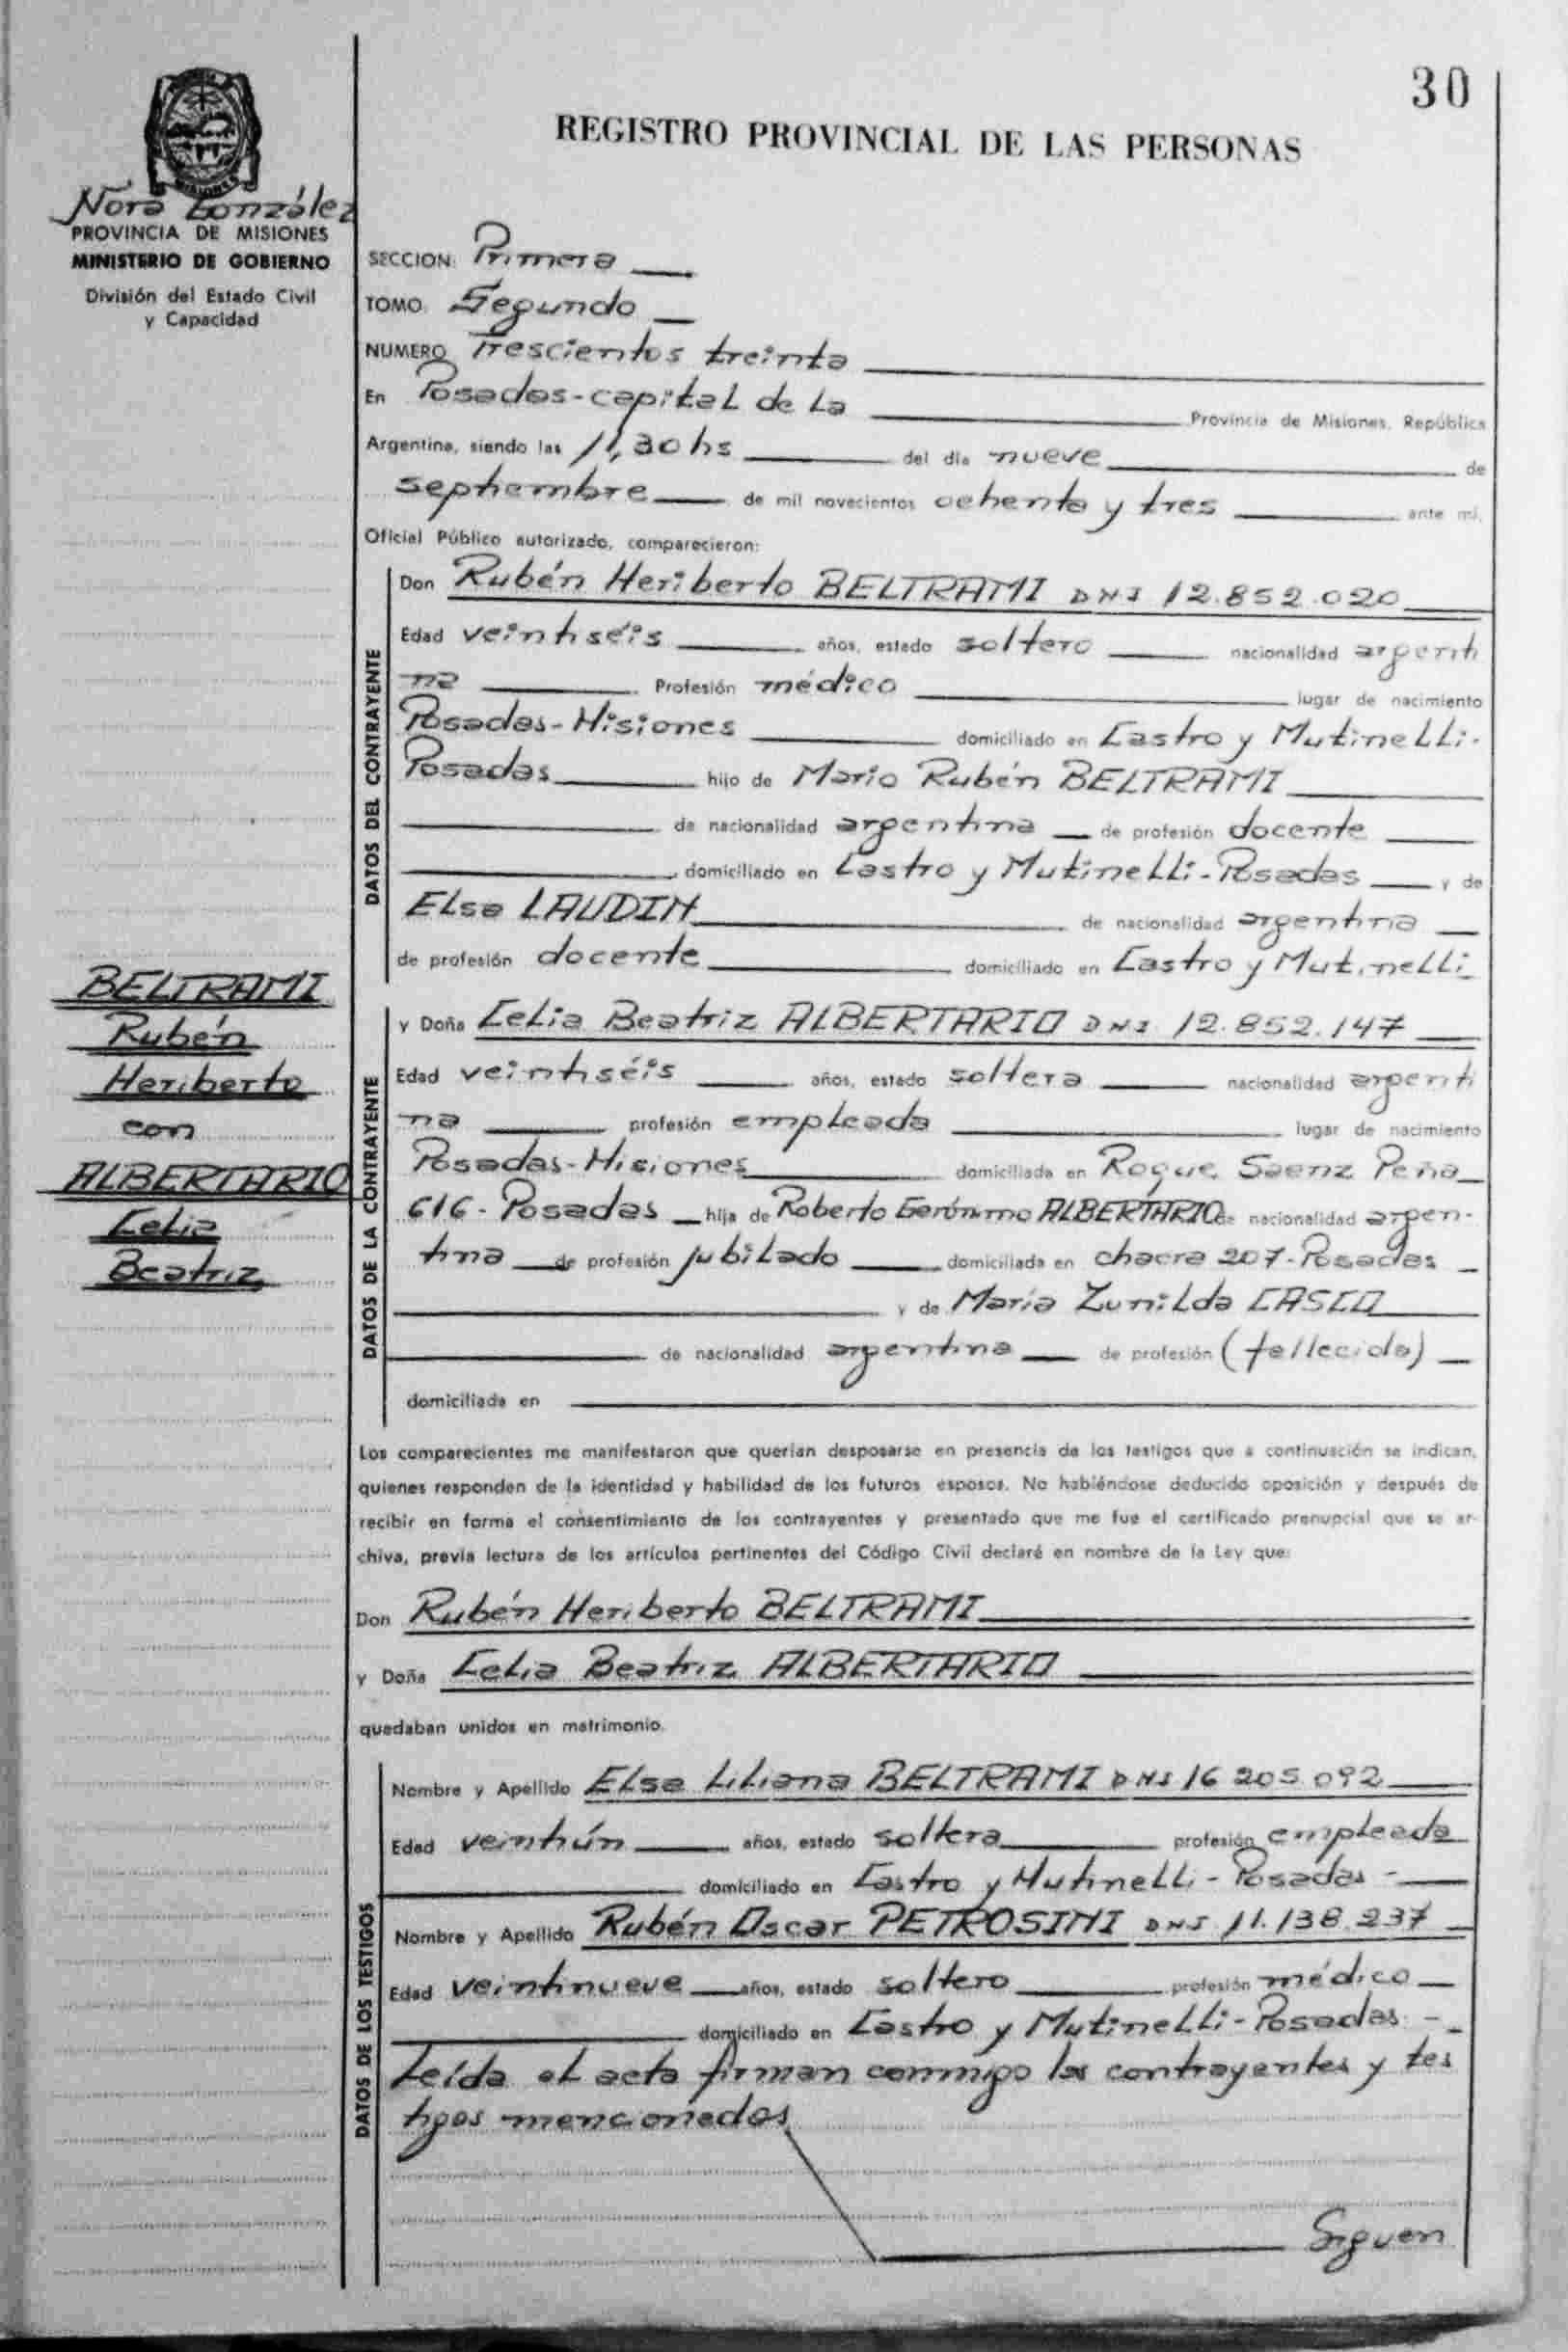 30
REGISTRO PROVINCIAL DE LAS PERSONAS
MISIONES
Nora González
PROVINCIA DE MISIONES
MINISTERIO DE GOBIERNO
División del Estado Civil
y Capacidad
SECCION: Primera
TOMO: Segundo
NUMERO Trescientos treinta
En Posadas-capital de La Provincia de Misiones, República
Argentina, siendo las 11,30 hs del día nueve de
septiembre de mil novecientos ochenta y tres ante mí,
Oficial Público autorizado, comparecieron:
DATOS DEL CONTRAYENTE
Don Rubén Heriberto BELTRAMI DNI 12.852.020
Edad veintiséis años, estado soltero nacionalidad argenti
na Profesión médico lugar de nacimiento
Posadas-Misiones domiciliado en Castro y Mutinelli-
Posadas hijo de Mario Rubén BELTRAMI
de nacionalidad argentina de profesión docente
domiciliado en Castro y Mutinelli-Posadas y de
Elsa LAUDIN de nacionalidad argentina
de profesión docente domiciliado en Castro y Mutinelli
BELTRAMI
Rubén
Heriberto
con
ALBERTARIO
Celia
Beatriz
DATOS DE LA CONTRAYENTE
y Doña Celia Beatriz ALBERTARIO DNI 12.852.147
Edad veintiséis años, estado soltera nacionalidad argenti
na profesión empleada lugar de nacimiento
Posadas-Misiones domiciliada en Roque Saenz Peña
616-Posadas hija de Roberto Gerónimo ALBERTARIO de nacionalidad argen-
tina de profesión jubilado domiciliada en chacra 207-Posadas
y de María Zunilda CASCO
de nacionalidad argentina de profesión (fallecida)
domiciliada en
Los comparecientes me manifestaron que querían desposarse en presencia de los testigos que a continuación se indican,
quienes responden de la identidad y habilidad de los futuros esposos. No habiéndose deducido oposición y después de
recibir en forma el consentimiento de los contrayentes y presentado que me fue el certificado prenupcial que se ar-
chiva, previa lectura de los artículos pertinentes del Código Civil declaré en nombre de la Ley que:
Don Rubén Heriberto BELTRAMI
y Doña Celia Beatriz ALBERTARIO
quedaban unidos en matrimonio.
DATOS DE LOS TESTIGOS
Nombre y Apellido Elsa Liliana BELTRAMI DNI 16 205 092
Edad veintiún años, estado soltera profesión empleada
domiciliado en Castro y Mutinelli-Posadas-
Nombre y Apellido Rubén Oscar PETROSINI DNI 11.138.237
Edad veintinueve años, estado soltero profesión médico
domiciliado en Castro y Mutinelli-Posadas-
Leída el acta firman conmigo los contrayentes y tes
tigos mencionados
Siguen